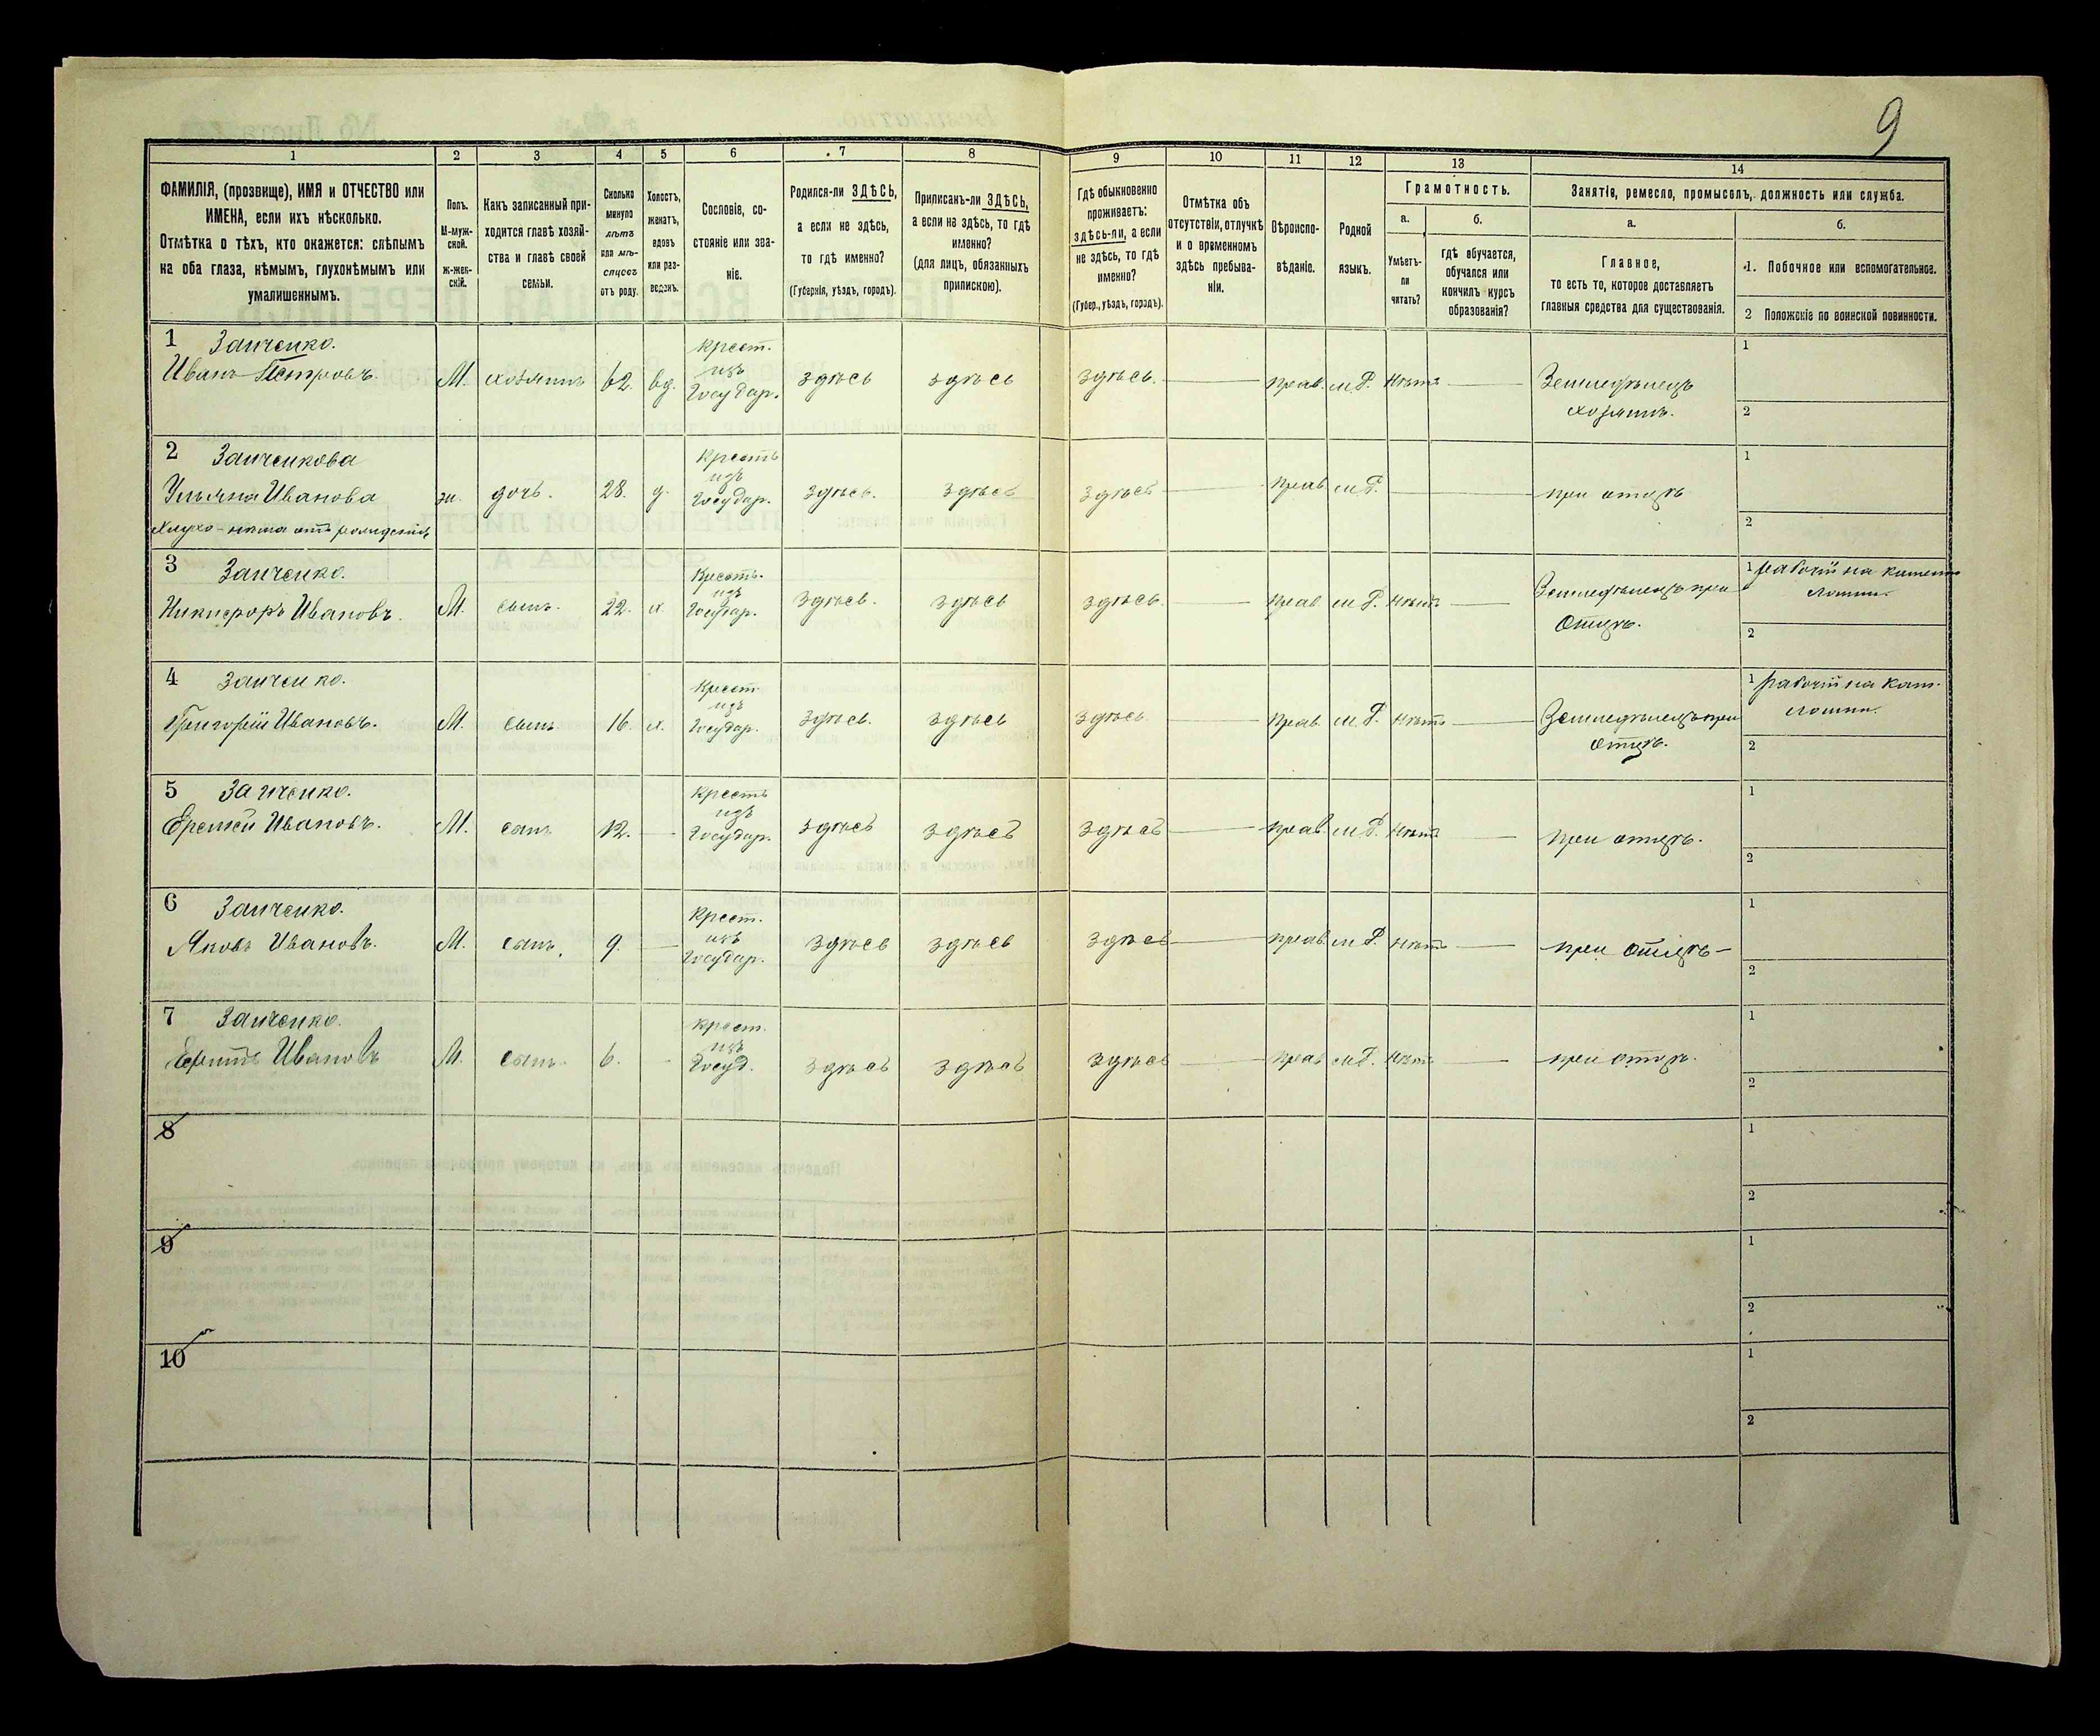 9
1 2 3 4 5 6 7 8 9 10 11 12 13 14
ФАМИЛІЯ, (прозвище), ИМЯ и ОТЧЕСТВО или
ИМЕНА, если ихъ нѣсколько.
Отмѣтка о тѣхъ, кто окажется: слѣпымъ
на оба глаза, нѣмымъ, глухонѣмымъ или
умалишеннымъ.
Полъ.
М-муж-
ской.
Ж-жен-
скій.
Какъ записанный при-
ходится главѣ хозяй-
ства и главѣ своей
семьи.
Сколько
минуло
лѣтъ
или мѣ-
сяцевъ
отъ роду.
Холостъ,
женатъ,
вдовъ
или раз-
веденъ.
Сословіе, со-
стояніе или зва-
ніе.
Родился-ли ЗДѢСЬ,
а если не здѣсь,
то гдѣ именно?
(Губернія, уѣздъ, городъ).
Приписанъ-ли ЗДѢСЬ,
а если не здѣсь, то гдѣ
именно?
(для лицъ, обязанныхъ
припискою).
Гдѣ обыкновенно
проживаетъ:
здѣсь-ли, а если
не здѣсь, то гдѣ
именно?
(Губер., уѣздъ, городъ).
Отмѣтка объ
отсутствіи, отлучкѣ
и о временномъ
здѣсь пребыва-
ніи.
Вѣроиспо-
вѣданіе.
Родной
языкъ.
Грамотность.
а.
Умѣетъ-
ли
читать?
б.
гдѣ обучается,
обучался или
кончилъ курсъ
образованія?
Занятіе, ремесло, промыселъ, должность или служба.
а.
Главное,
то есть то, которое доставляетъ
главныя средства для существованія.
б.
1. Побочное или вспомогательное.
2 Положеніе по воинской повинности.
1 Заиченко.
Иванъ Петровъ М. хозяинъ 62. вд. Крест. изъ Государ. здѣсь здѣсь здѣсь. — прав. м.Р. Нѣтъ — Земледѣлецъ
хозяинъ.
1
2
2 Заиченкова
Ульяна Иванова ж. дочь. 28. д. Крестъ изъ Государ. здѣсь. здѣсь здѣсь — прав м.Р. — при отцѣ
Глухо-нѣма отъ рожденія
1
2
3 Заиченко. 1 рабочій на камен
Никифоръ Ивановъ. М. сынъ. 22. х. Крестъ. изъ Государ. здѣсь. здѣсь здѣсь. — прав м.Р. Нѣтъ — Земледѣлецъ при
Отцѣ.
ломни.
2
4 Заиченко. 1 рабочій на кам.
Григорій Ивановъ. М. сынъ 16. х. Крест. изъ Государ. здѣсь. здѣсь здѣсь — прав. м.Р. Нѣтъ — Земледѣлецъ при
отцѣ.
ломни.
2
5 Заиченко.
Еремей Ивановъ. М. сынъ 12. — Крестъ изъ Государ. здѣсь здѣсь здѣсь — прав. м.Р. Нѣтъ — при отцѣ.
1
2
6 Заиченко.
Яковъ Ивановъ. М. сынъ. 9. — Крест. изъ Государ. здѣсь здѣсь здѣсь — прав м.Р. Нѣтъ — при отцѣ —
1
2
7 Заиченко.
Ивановъ М. сынъ. 6. - Крест. изъ Госуд. здѣсь здѣсь здѣсь — прав м.Р. Нѣтъ — при отцѣ.
1
2
8
1
2
9
1
2
10
1
2